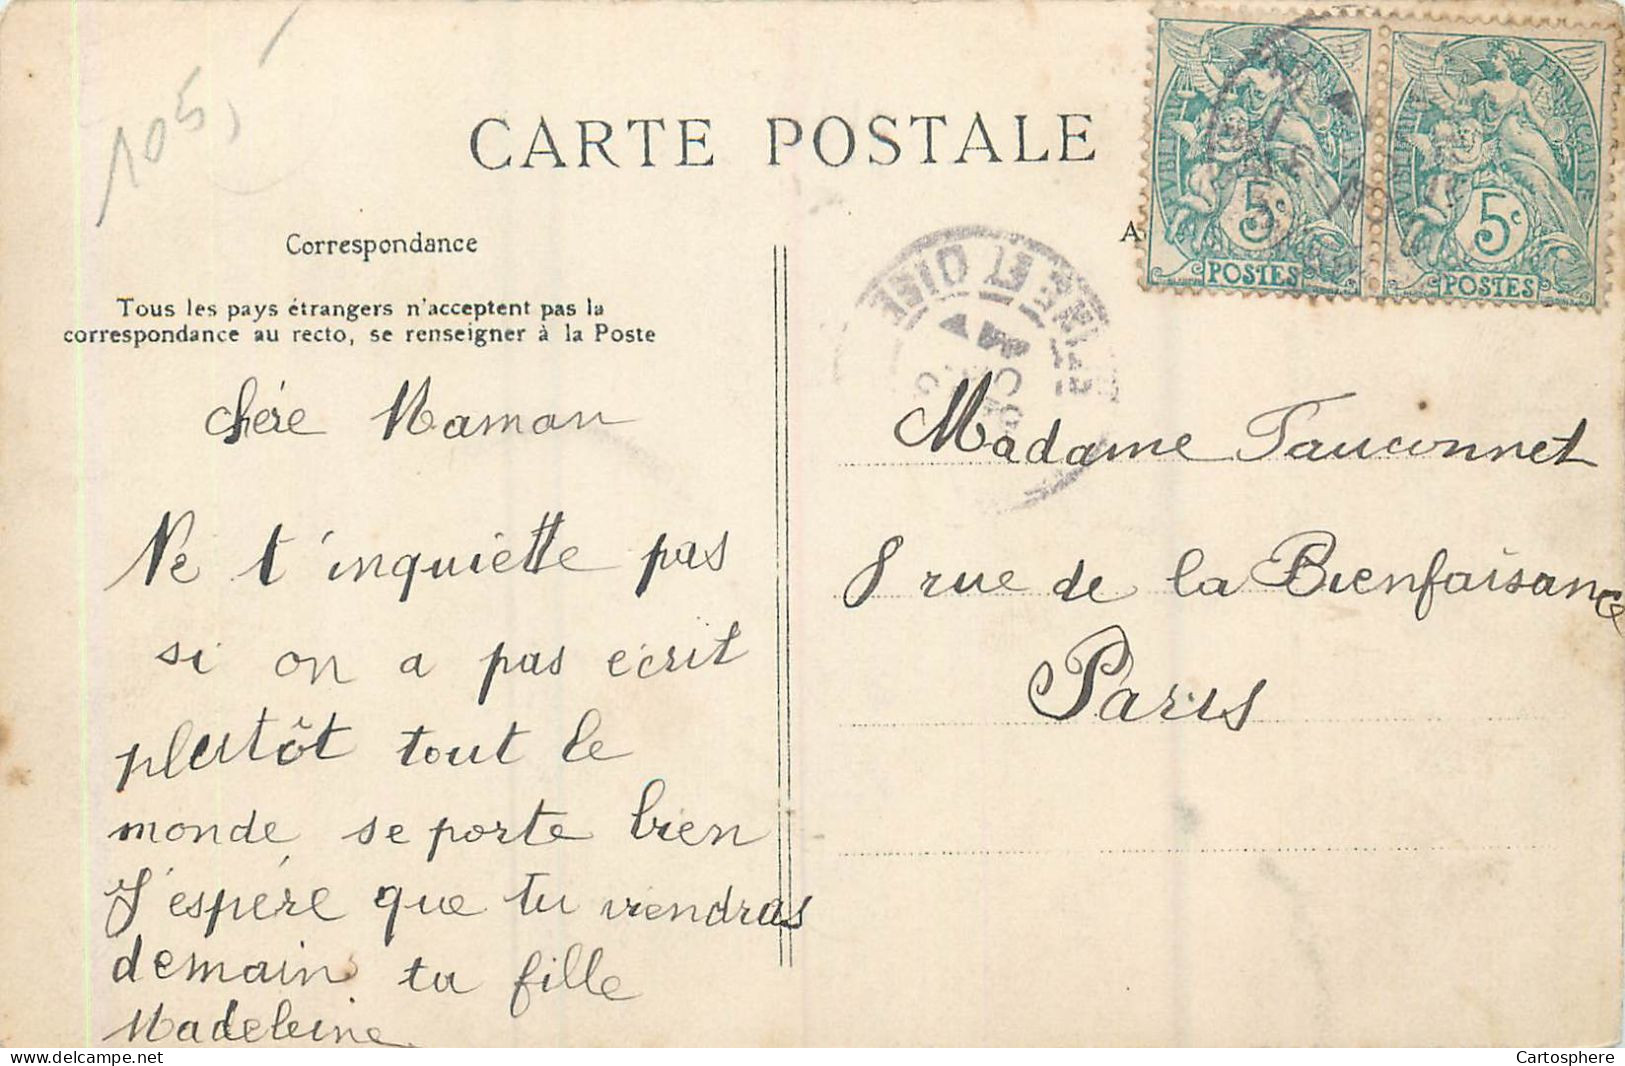 105,
CARTE POSTALE
RÉPUBLIQUE FRANÇAISE
5c
POSTES
RÉPUBLIQUE FRANÇAISE
5c
POSTES
Correspondance
A
Tous les pays étrangers n'acceptent pas la
correspondance au recto, se renseigner à la Poste
SEINE ET OISE
chére Maman
Ne t'inquiette pas
si on a pas ecrit
plutôt tout le
monde se porte bien
J'espére que tu viendras
demain ta fille
Madeleine
Madame Fauconnet
8 rue de la Bienfaisance
Paris
Cartosphere